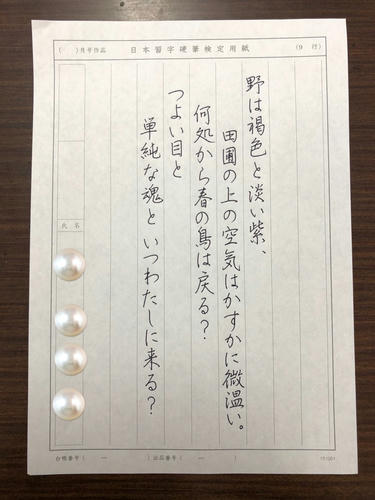 ( )月号作品 日本習字硬筆検定用紙 (9 行)
野は褐色と淡い紫、
田圃の上の空気はかすかに微温い。
何処から春の鳥は戻る?
つよい目と
単純な魂と いつわたしに来る?
氏名
白鴨番号( — )出品番号( — )